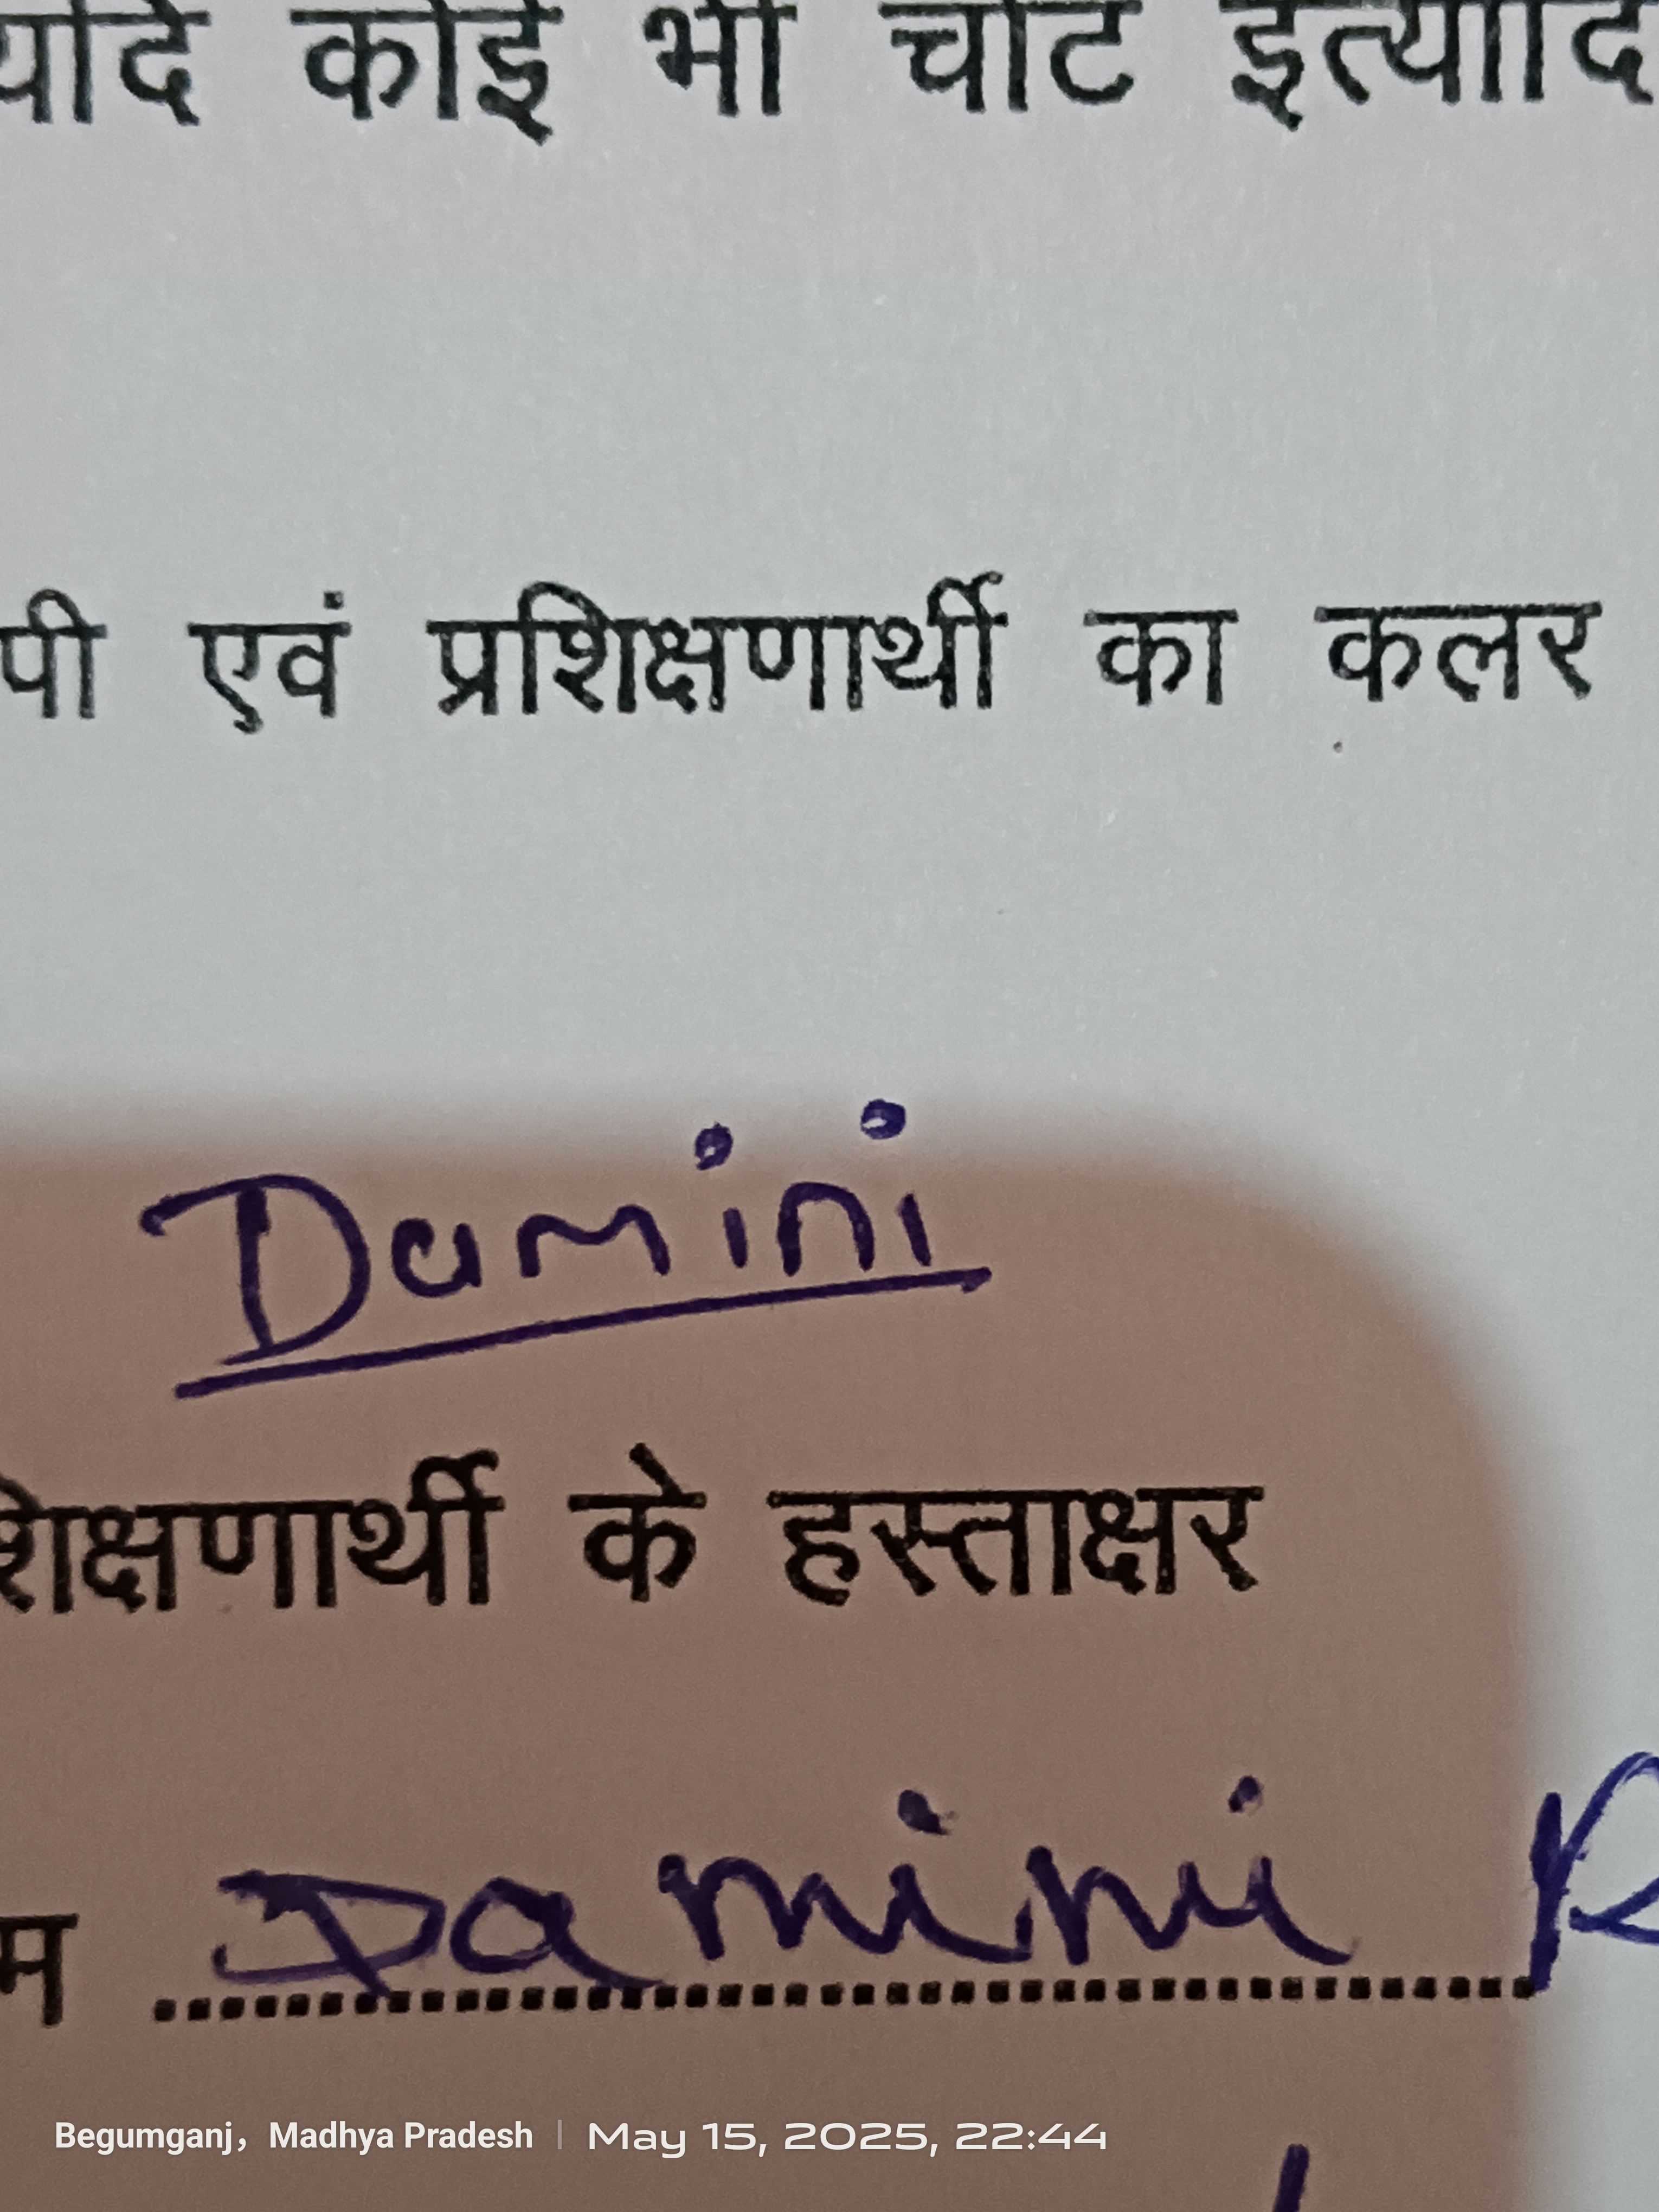 यदि कोई भी चोट इत्यादि
पी एवं प्रशिक्षणार्थी का कलर
Damini
शिक्षणार्थी के हस्ताक्षर
म Damini R
Begumganj, Madhya Pradesh | May 15, 2025, 22:44